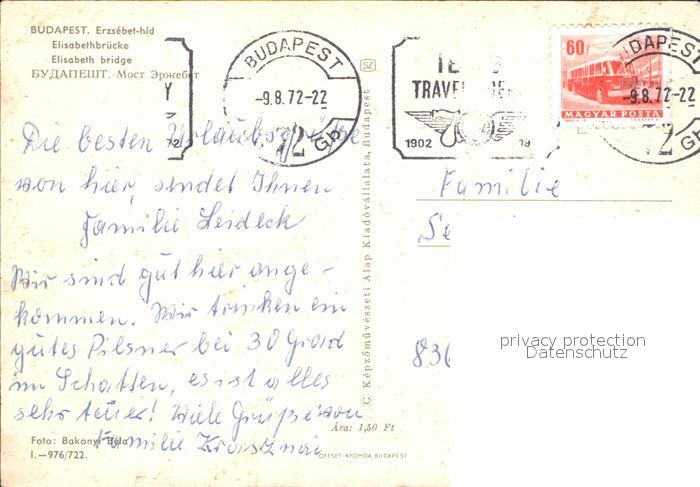 BUDAPEST. Erzsébet-híd
Elisabethbrücke
Elisabeth bridge
БУДАПЕШТ. Мост Эржебет
BUDAPEST
-9.8.72-22
72
SZ
TRAVEL
1902
19
60f
MAGYAR POSTA
BUDAPEST
-9.8.72-22
72
Die besten Urlaubsgrüsse
von hier, sendet Ihnen
Familie Leideck
Wir sind gut hier ange-
kommen. Wir trinken ein
gutes Pilsner bei 30 Grad
im Schatten, es ist alles
sehr teuer! Viele Grüße von
Familie Krasznai
Familie
Se
836
privacy protection
Datenschutz
© Képzőművészeti Alap Kiadóvállalata, Budapest
Ára: 1,50 Ft
Foto: Bakonyi Béla
I.—976/722.
OFFSET-NYOMDA, BUDAPEST